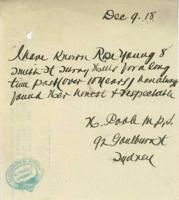 Dec 9. 18
I have Known Rose Young 8
Smith St Surry Hills for a long
time past (over 10 years) & have always
found her honest & respectable
H. Poole M.P.S.
92 Goulburn St
Sydney